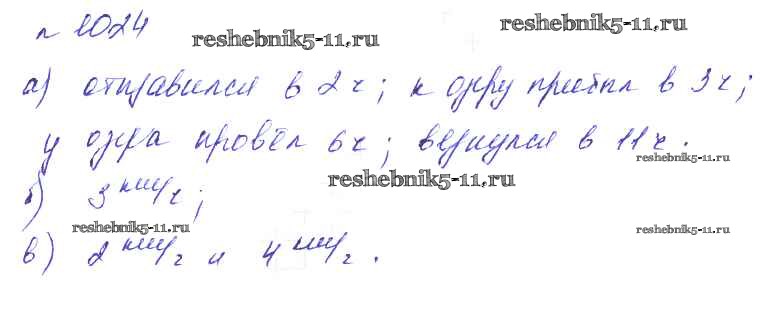 n 1024
reshebnik5-11.ru
reshebnik5-11.ru
а) отправился в 2 ч; к озеру прибыл в 3 ч;
у озера провёл 6 ч; вернулся в 11 ч.
reshebnik5-11.ru
reshebnik5-11.ru
б) 3 км/ч;
reshebnik5-11.ru
в) 2 км/ч и 4 км/ч.
reshebnik5-11.ru